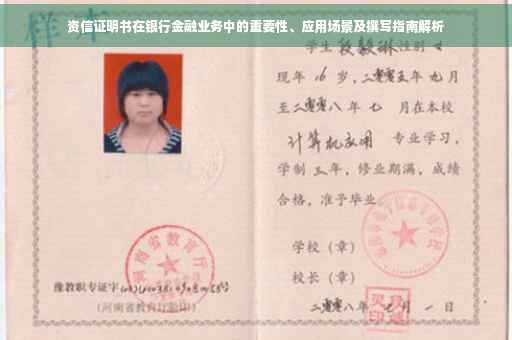 资信证明书在银行金融业务中的重要性、应用场景及撰写指南解析
样本
学生 段毅琳 性别 女
现年 16 岁,二零零五年 九月
至二零零八年 七 月在本校
计算机应用 专业学习,
学制 三 年,修业期满,成绩
合格,准予毕业。
学校(章)
校长(章)
二零零八年 七 月 一 日
河南省教育厅
豫教职专证字
(河南省教育厅验印)